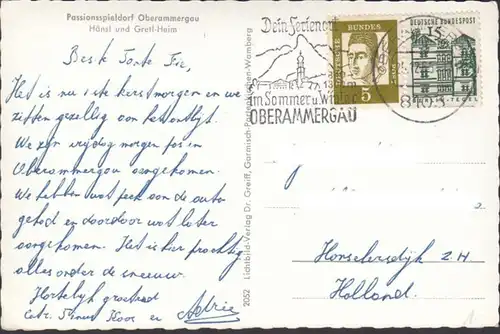 Passionsspieldorf Oberammergau
Hänsl und Gretl-Heim
Beste Tante Fie,
Het is nu iste kerstmorgen en we
zitten gezellig aan het ontbijt.
We zijn vrijdag morgen pas in
Oberammergau aangekomen.
We hebben wat pech aan de auto
gehad en daardoor wat later
aangekomen. Het is hier prachtig
alles onder de sneeuw.
Hartelijk groetend
en Adrie
2052 Lichtbild-Verlag Dr. Greiff, Garmisch-Partenkirchen-Wamberg
Dein Ferienort
im Sommer u. Winter
OBERAMMERGAU
BUNDES
5
DEUTSCHE BUNDESPOST
15
TEGEL
8103
Honselersdijk Z.H
Holland.